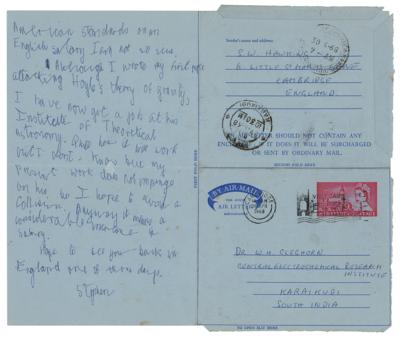 American standards on an
English salary I am not so sure.
Although I wrote my first paper
attacking Hoyle's theory of gravity,
I have now got a job at his
Institute of Theoretical
Astronomy. How it will work
out I don't know but my
present work does not impinge
on his so I hope to avoid a
collision. Anyway it makes a
considerable to my
salary.
Hope to see you back in
England one of these days.
Stephen
Sender's name and address:
S.W. HAWKING
6 LITTLE ST MARY'S LANE
CAMBRIDGE
ENGLAND.
AN AIR LETTER SHOULD NOT CONTAIN ANY
ENCLOSURE; IF IT DOES IT WILL BE SURCHARGED
OR SENT BY ORDINARY MAIL.
SECOND FOLD HERE
FIRST FOLD HERE
BY AIR MAIL
AIR LETTER
1968
POSTAGE
DR. W. H. CLEGHORN
CENTRAL ELECTROCHEMICAL RESEARCH
INSTITUTE
KARAIKUDI
SOUTH INDIA
TO OPEN SLIT HERE